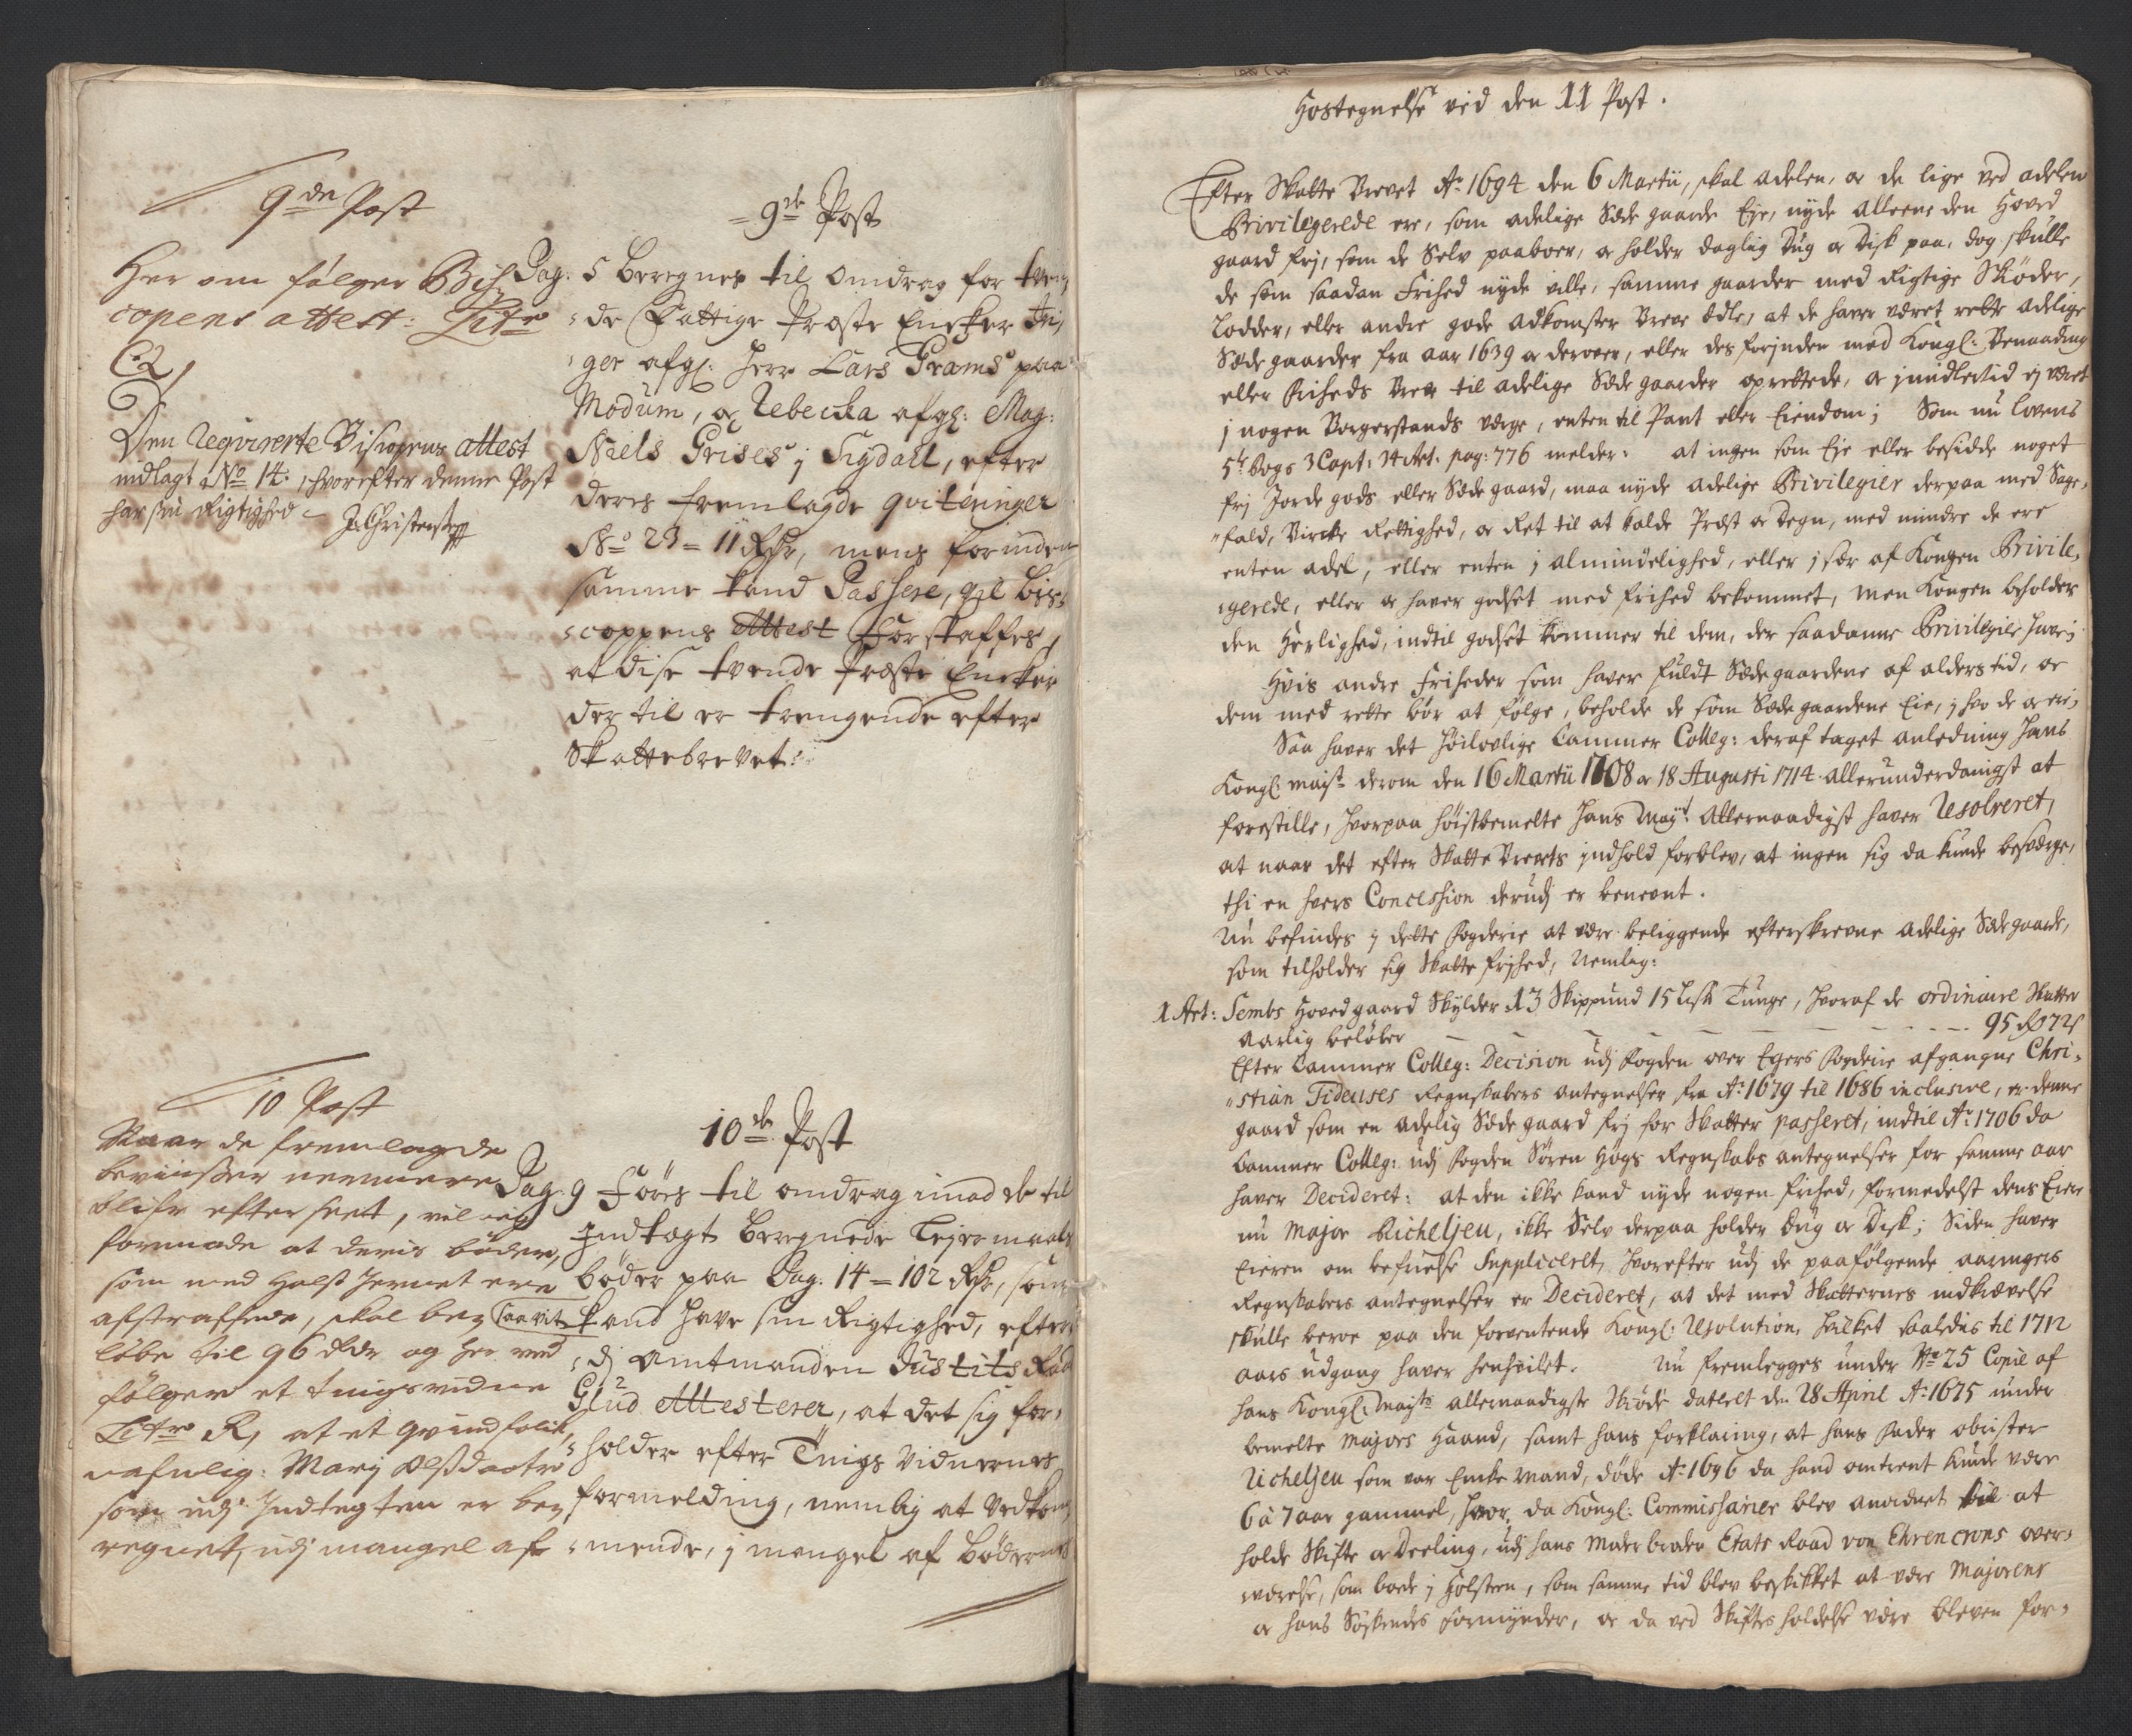 9de Post
Her om følger Bis-
copens attest: Litr
C2,
Den Reqvirerte Biscopens attest
indlagt No 14. hvorefter denne Post
har sin Rigtighed
J. Christensen
=9de Post
Pag: 5 beregnes til omdrag for tven-
de Fattige Præste Encker
afg: Herr Lars Grams paa
Modum, og Rebecka afg: Mag:
Niels Grises j Sigdall, efter
deres fremlagde qviteringer
No 23 = 11 Rdr, mens forinden
samme kand Passere, vil bis-
coppens Attest forskaffes,
at dise tvende Præste Encker
der til er trengende efter
Skattebrevet:
10 Post
Naar de fremlagde
beviisser nermere
blifr efterseet, vil
formode at deris bøder,
som med Halss Jernet ere
afstraffede, skal be-
løbe til 96 Rdr og her med
følger et tingsvidne
Litr R, at et qvindfolk
nafnlig: Mary Olssdaatr
som udj Indtegten er be-
regnet, udj mangel af
10de Post
Pag: 9 Føres til omdrag imod de til
Indtægt beregnede Leyermaals
bøder paa Pag: 14 = 102 Rdr, som
saavit kand have sin Rigtighed, efter-
dj Amtmanden Justits Raad
Glud Attesterer, at det sig for-
holder efter Tings Vidnernes
formelding, nemlig at Vedkom-
mende, j mangel af bødernes
Hostegnelse ved den 11 Post.
Efter Skatte Brevet Ao 1694 den 6 Martii, skal adelen, og de lige ved adelen
Privilegerede ere, som adelige Sæde gaarde Eje, nyde alleene den Hoved
gaard frj, som de Selv paaboer, og holder daglig Dug og Disk paa, dog skulle
de som saadan Frihed nyde ville, samme gaarder med Rigtige Skiøder,
Lodder, eller andre gode adkomster Breve ædle, at de haver været rette adelige
Sæde gaarder fra aar 1639 og derover, eller des forjnden med Kongl: Benaading
eller Friheds Brev til adelige Sæde gaarder oprettede, og jmidlertid ej været
j nogen Borgerstands værge, enten til Pant eller Eiendom; Som nu Lovens
5te Bogs 3 Capt: 34 Art: pag: 776 melder: at ingen som Eje eller besidde noget
frj Jorde gods eller Sæde gaard, maa nyde adelige Privilegier derpaa med Sage-
fald, Bircke Rettighed, og Ret til at kalde Præst og Degn, med mindre de ere
enten adel, eller enten j almindelighed, eller jsær af Kongen Privile-
gerede, eller og haver godset med frihed bekommet, men Kongen beholder
den Herlighed, indtil godset kommer til dem, der saadanne Privilegier have;
Hvis andre Friheder som haver fuldt Sædegaardene af alders tid, og
dem med rette bør at følge, beholde de som Sædegaardene Eie, j hvo de og ere;
Saa haver det Høilovlige Cammer Colleg: deraf taget anledning Hans
Kongl: mayst derom den 16 Martii 1708 og 18 Augusti 1714 allerunderdanigst at
forestille, hvorpaa høistbemelte Hans Mayt: Allernaadigst haver Resolveret,
at naar det efter Skatte Brevets jndhold forblev, at ingen sig da kunde besværge,
thi en hvers Concession derudj er benevnt.
Nu befindes j dette fogderie at være beliggende efterskrevne adelige Sædegaarde,
som tilholder sig Skatte frjhed, Nemlig:
1 Art: Sembs Hovedgaard Skylder 13 Skippund 15 Lisk Tunge, hvoraf de ordinaire Skatter
aarlig beløber - - - - - - 95 rd 72 s
Efter Cammer Colleg: Decision udj fogden over Egers fogderie afgangne Chri-
stian Tidenses Regnskabers antegnelser fra Ao 1679 til 1686 inclusive, er denne
gaard som en adelig Sæde gaard frj for Skatter passeret, indtil Ao 1706 da
Cammer Colleg: udj fogden Sören Högs Regnskabs antegnelser for samme aar
haver Decideret: at den ikke kand nyde nogen frihed, formedelst dens Eier
nu Major Richeljeu, ikke Selv derpaa holder Dug og Disk; Siden haver
Eieren om befrielse Suppliceret, hvorefter udj de paafølgende aaringers
Regnskabers antegnelser er Decideret, at det med Skatternes indkrævelse
skulle beroe paa den forventende Kongl: Resolution, hvilket saaledis til 1712
aars udgang haver henhvilet. Nu fremlegges under No 25 Copie af
hans Kongl: Mayts allernaadigste Skiøde dateret den 28 April Ao 1675 under
bemelte Majors Haand, samt hans forklaring, at hans fader obrister
Richeljeu som var Enke mand, døde Ao 1696 da hand omtrent kunde være
6 à 7 aar gammel, hvor da Kongl: Commissarier blev anordnet til at
holde Skifte og Deeling, udj hans Moderbroder Etats Raad von Ehrencrons over-
værelse, som boede j Holsten, som samme tid blev beskikket at være Majorens
og hans Søskendes formynder, og da ved Skiftes holdelse være bleven for-